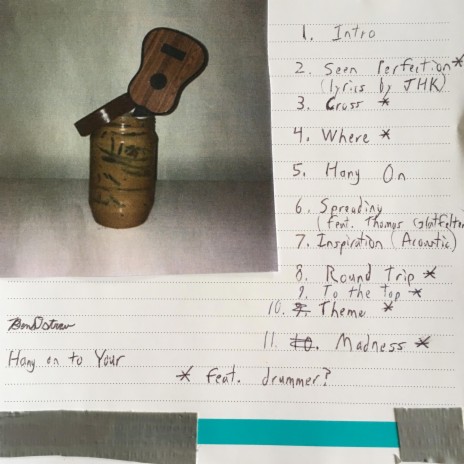 1. Intro
2. Seen Perfection*
(lyrics by JHK)
3. Cross *
4. Where *
5. Hang On
6. Spreading
(feat. Thomas Glatfelter
7. Inspiration (Acoustic)
8. Round Trip *
9. To the Top *
10. Theme *
11. Madness *
Hang on to Your
* feat. drummer?